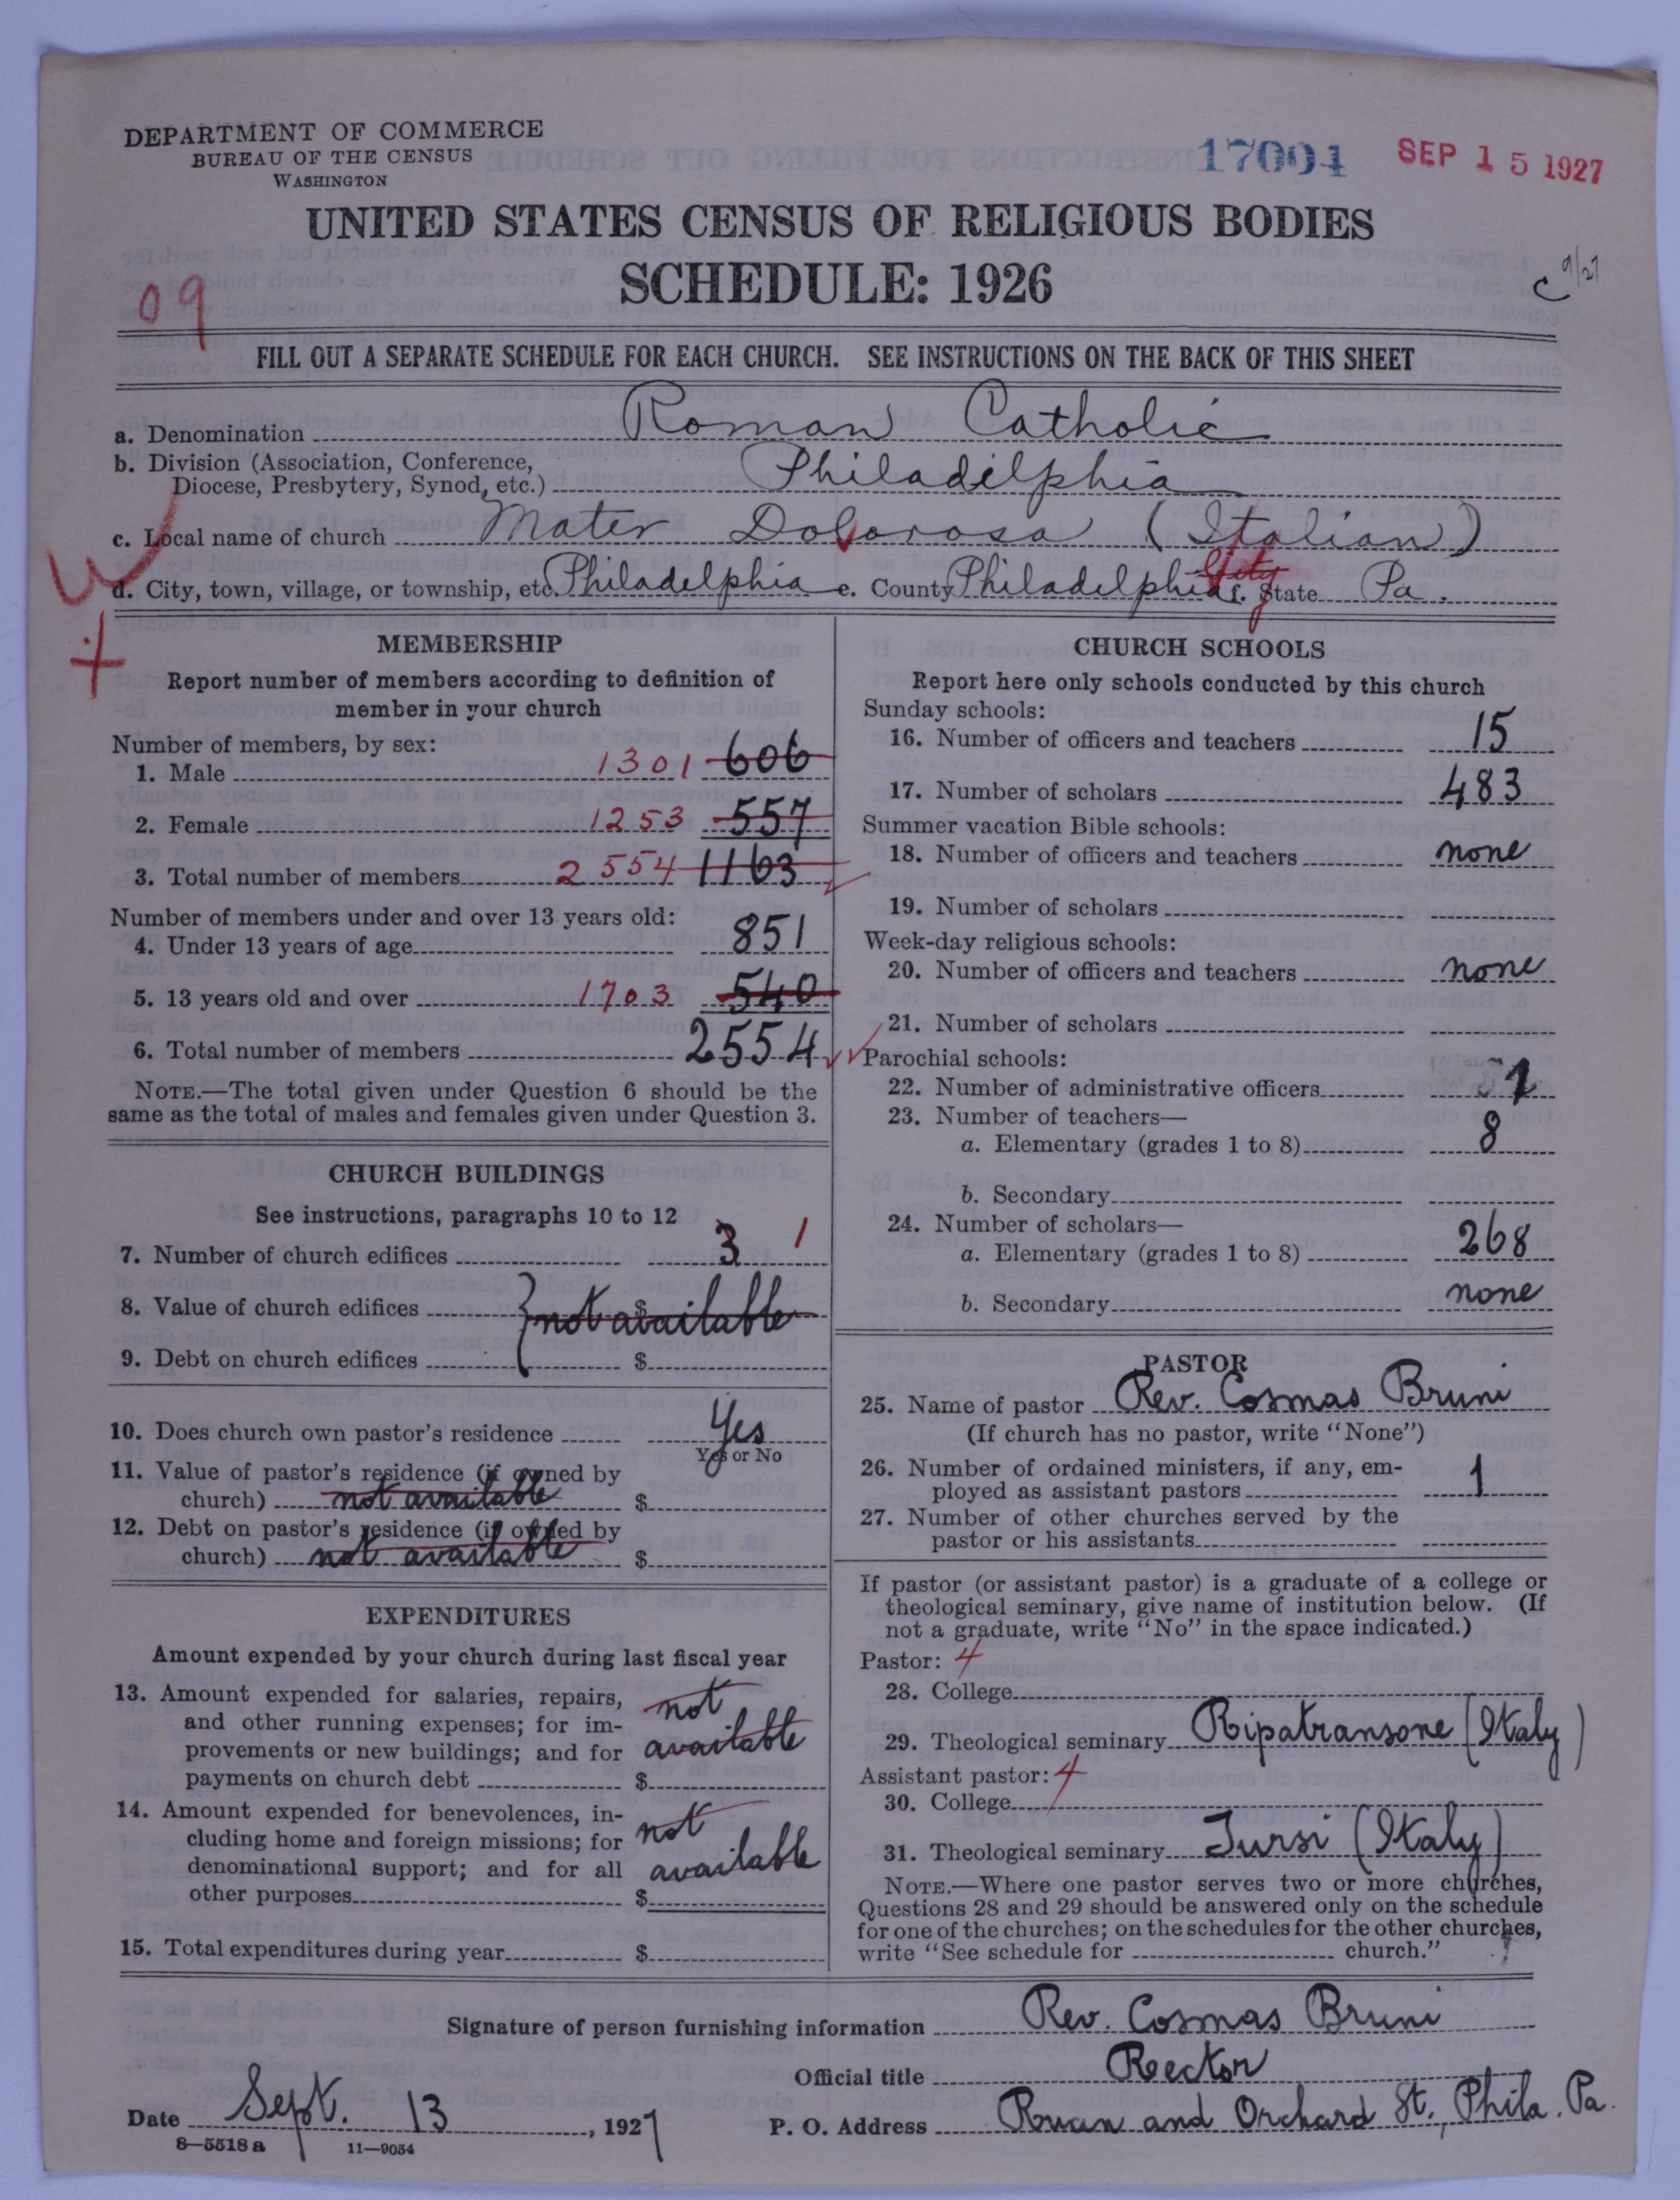 DEPARTMENT OF COMMERCE
BUREAU OF THE CENSUS
WASHINGTON
17004 SEP 15 1927
UNITED STATES CENSUS OF RELIGIOUS BODIES
SCHEDULE: 1926
09
C 9/27
FILL OUT A SEPARATE SCHEDULE FOR EACH CHURCH. SEE INSTRUCTIONS ON THE BACK OF THIS SHEET
a. Denomination Roman Catholic
b. Division (Association, Conference,
Diocese, Presbytery, Synod, etc.) Philadelphia
c. Local name of church Mater Dolorosa (Italian)
d. City, town, village, or township, etc. Philadelphia e. County Philadelphia City f. State Pa.
MEMBERSHIP
Report number of members according to definition of
member in your church
Number of members, by sex:
1. Male 1301 606
2. Female 1253 557
3. Total number of members 2554 1163
Number of members under and over 13 years old:
4. Under 13 years of age 851
5. 13 years old and over 1703 540
6. Total number of members 2554
NOTE.—The total given under Question 6 should be the
same as the total of males and females given under Question 3.
CHURCH BUILDINGS
See instructions, paragraphs 10 to 12
7. Number of church edifices 3 1
8. Value of church edifices $ not available
9. Debt on church edifices $
10. Does church own pastor's residence Yes
Yes or No
11. Value of pastor's residence (if owned by
church) not available $
12. Debt on pastor's residence (if owned by
church) not available $
EXPENDITURES
Amount expended by your church during last fiscal year
13. Amount expended for salaries, repairs, not
and other running expenses; for im-
provements or new buildings; and for available
payments on church debt $
14. Amount expended for benevolences, in-
cluding home and foreign missions; for not
denominational support; and for all available
other purposes $
15. Total expenditures during year $
CHURCH SCHOOLS
Report here only schools conducted by this church
Sunday schools:
16. Number of officers and teachers 15
17. Number of scholars 483
Summer vacation Bible schools:
18. Number of officers and teachers none
19. Number of scholars
Week-day religious schools:
20. Number of officers and teachers none
21. Number of scholars
Parochial schools:
22. Number of administrative officers 1
23. Number of teachers—
a. Elementary (grades 1 to 8) 8
b. Secondary
24. Number of scholars—
a. Elementary (grades 1 to 8) 268
b. Secondary none
PASTOR
25. Name of pastor Rev. Cosmas Bruni
(If church has no pastor, write "None")
26. Number of ordained ministers, if any, em-
ployed as assistant pastors 1
27. Number of other churches served by the
pastor or his assistants
If pastor (or assistant pastor) is a graduate of a college or
theological seminary, give name of institution below. (If
not a graduate, write "No" in the space indicated.)
Pastor: 4
28. College
29. Theological seminary Ripatransone (Italy)
Assistant pastor: 4
30. College
31. Theological seminary Tursi (Italy)
NOTE.—Where one pastor serves two or more churches,
Questions 28 and 29 should be answered only on the schedule
for one of the churches; on the schedules for the other churches,
write "See schedule for church."
Signature of person furnishing information Rev. Cosmas Bruni
Official title Rector
Date Sept. 13, 1927 P. O. Address Ruan and Orchard St., Phila. Pa.
8—5518 a 11—9054